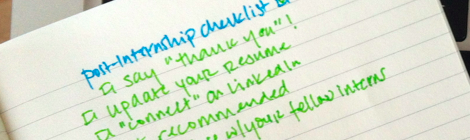 post-internship checklist
say "thank you"!
update your resume
"connect" on LinkedIn
recommended
w/your fellow interns